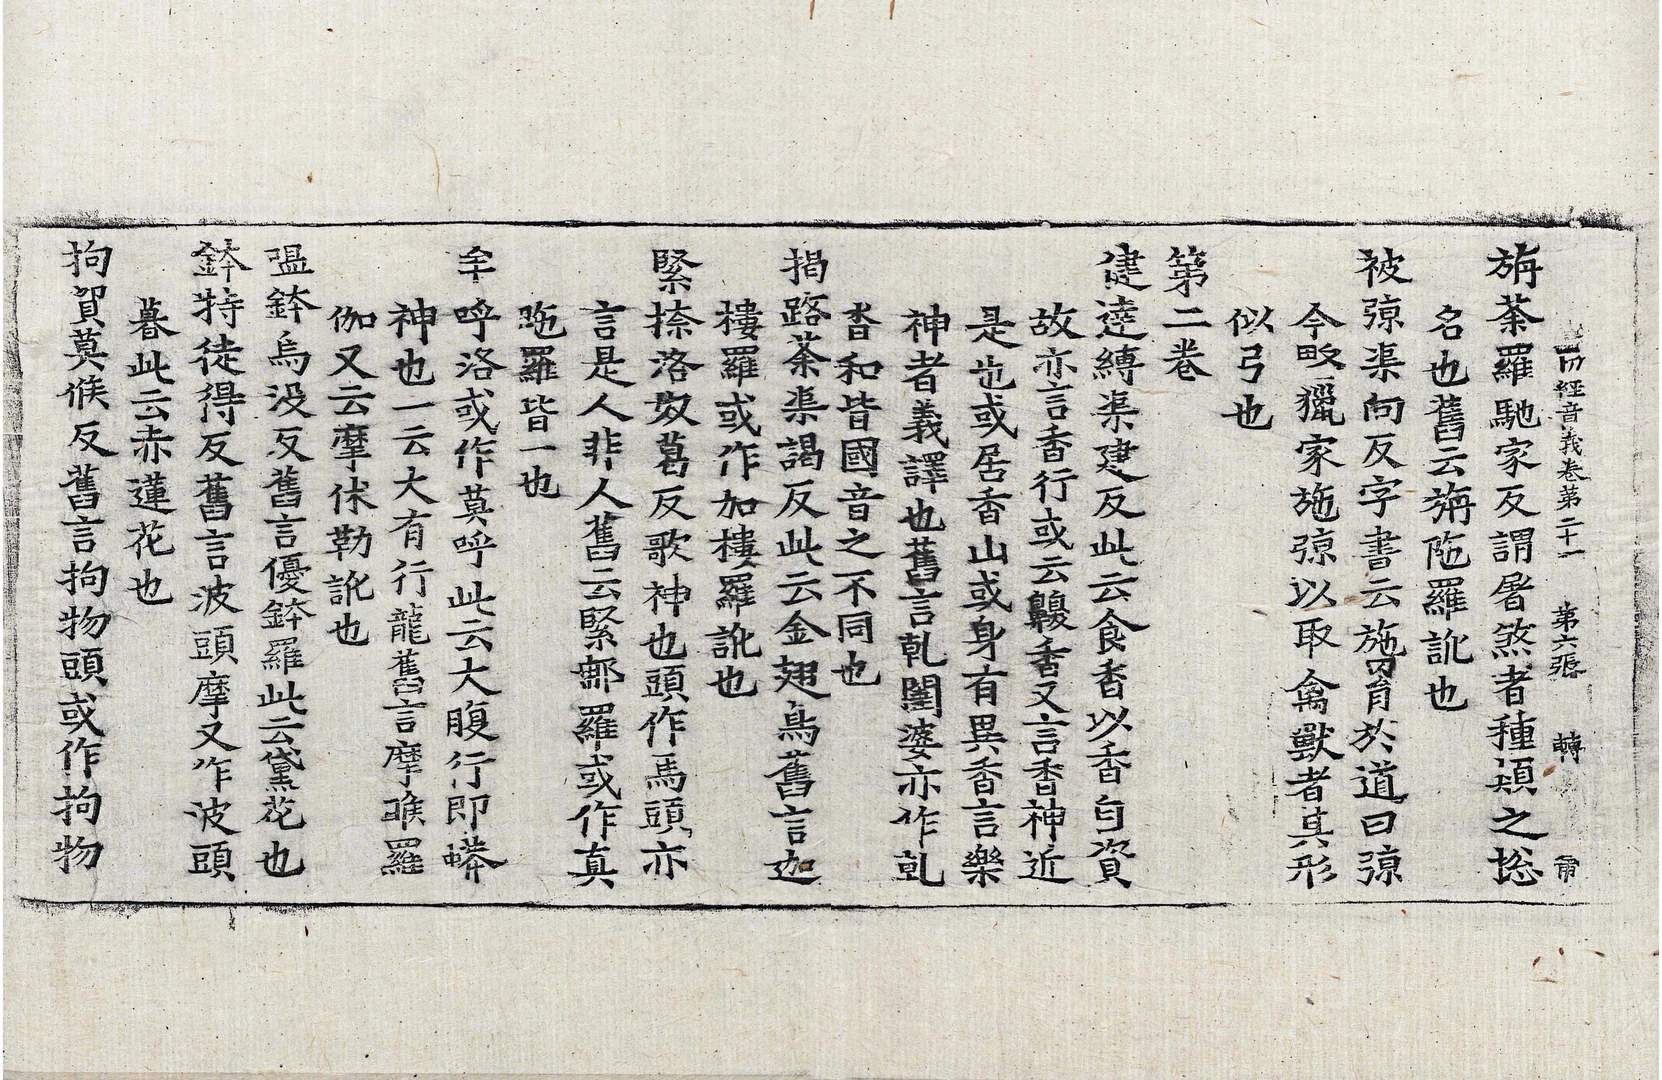 一切經音義卷第二十一 第六張 轉
旃荼羅馳家反謂屠煞者種類之揔
名也舊云旃陁羅訛也
被弶渠向反字書云施罥於道曰弶
今畋獵家施弶以取禽獸者其形
似弓也
第二卷
健達縛渠建反此云食香香以香自資
故亦言香行或云齅香又言香神近
是也或居香山或身有異香言樂
神者義譯也舊言乹闥婆亦作乹
沓和皆國音之不同也
揭路荼渠謁反此云金翅鳥舊言迦
樓羅或作加樓羅訛也
緊捺洛奴葛反歌神也頭作馬頭亦
言是人非人舊云緊那羅或作真
陁羅皆一也
牟呼洛或作莫呼此云大腹行即蟒
神也一云大有行龍舊言摩睺羅
伽又云摩休勒訛也
嗢鉢烏没反舊言優鉢羅此云黛花也
鉢特徒得反舊言波頭摩又作波頭
暮此云赤蓮花也
拘賀莫候反舊言拘物頭或作拘物